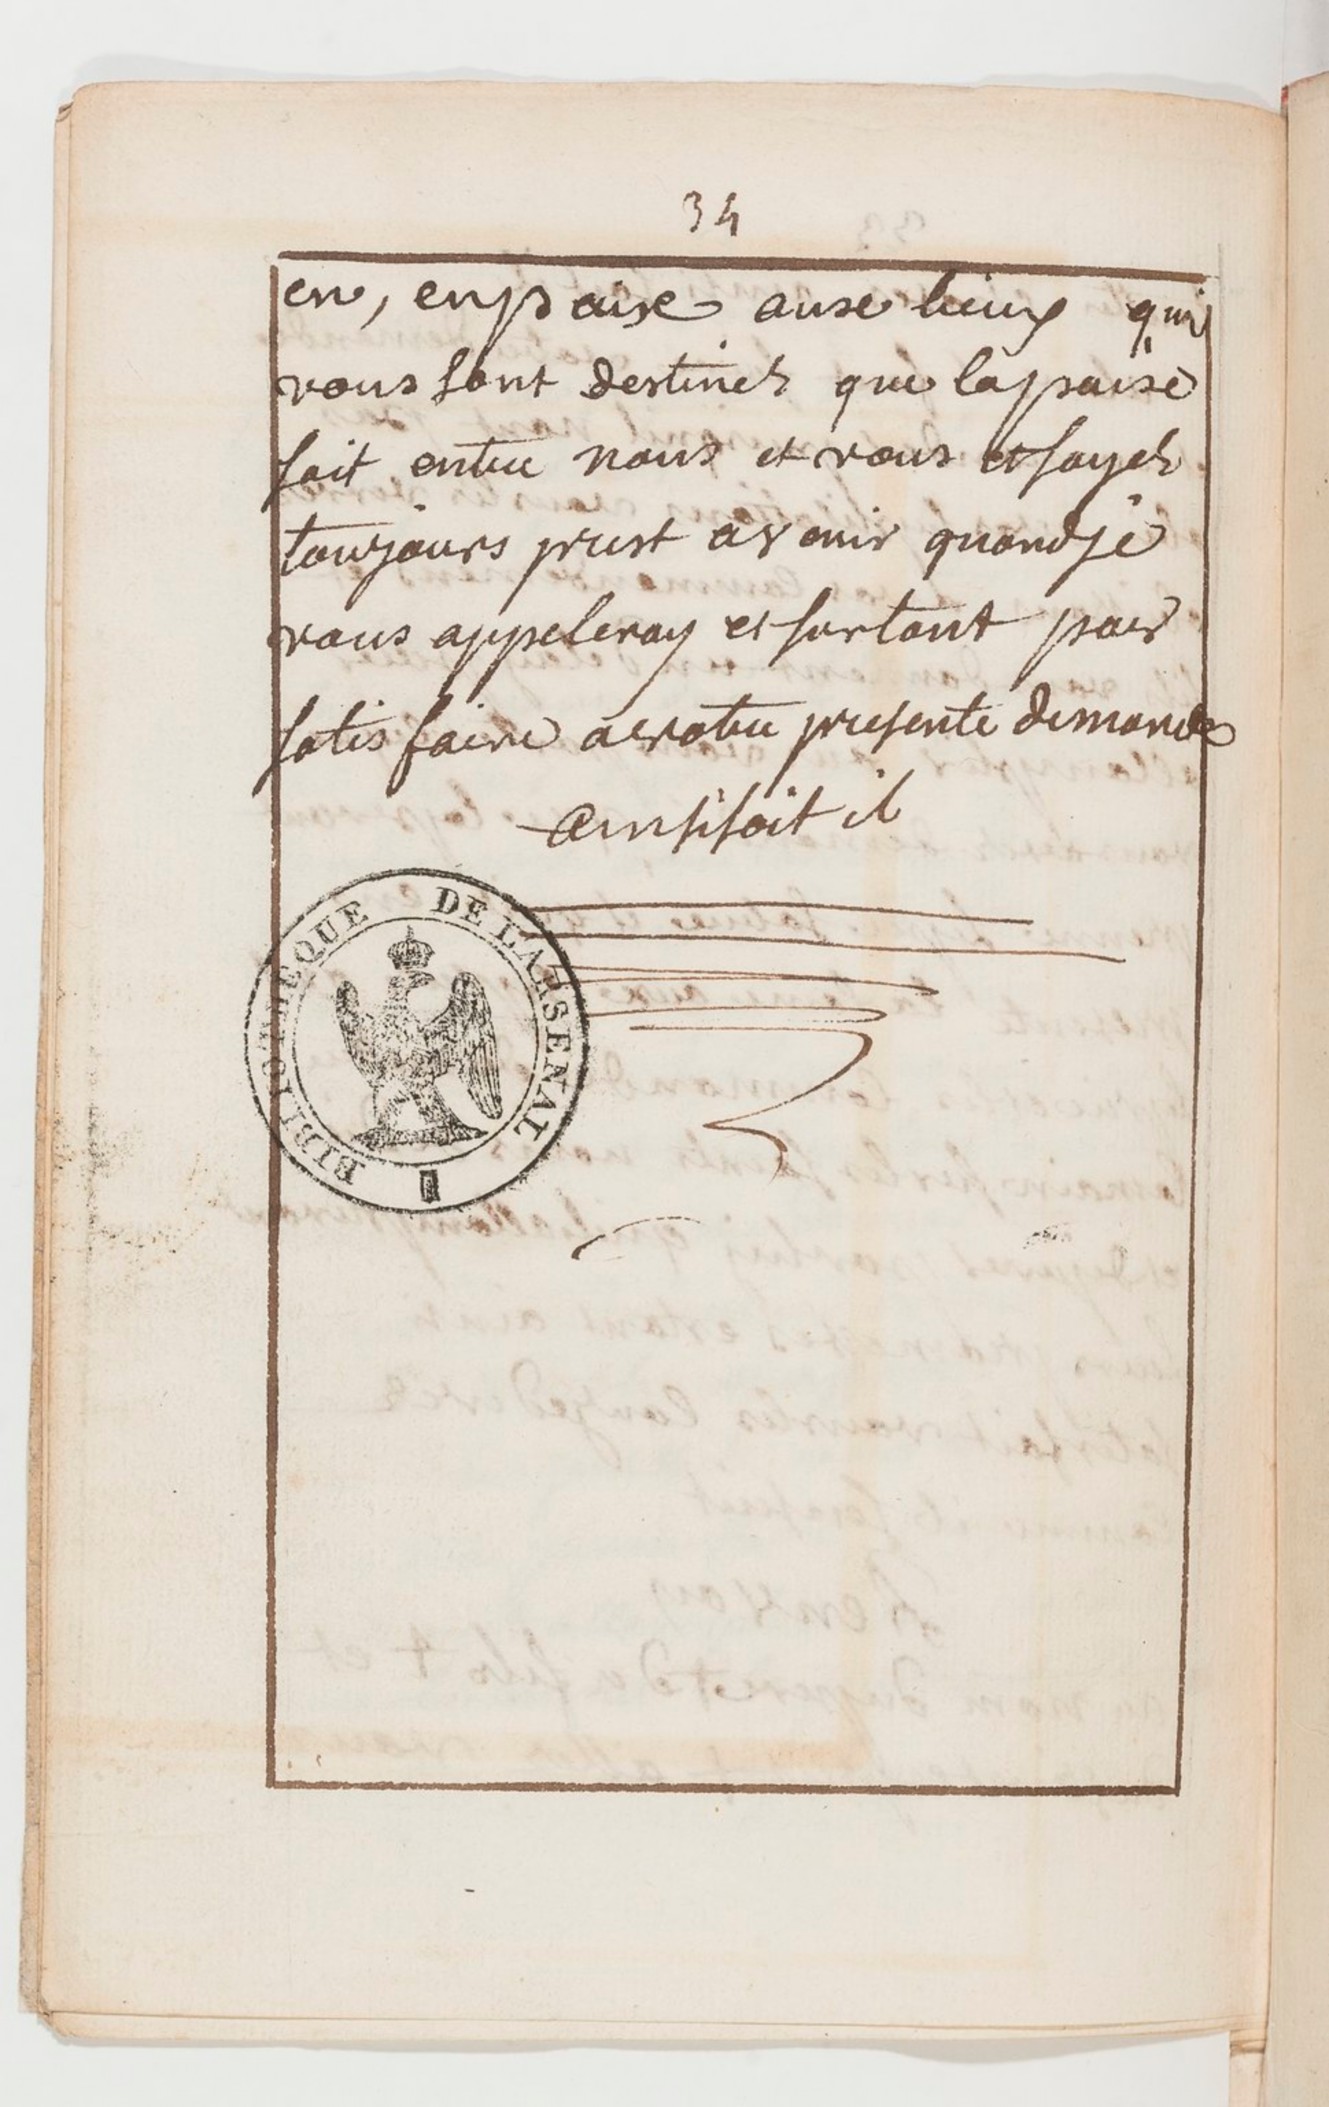 34
en, en paixe auxe lieux qui
vous sont destinez que la paise
soit entre nous et vous et soyez
toujours prest a venir quand je
vous appeleray et surtout pour
satisfaire a votre presente demande
ainsi soit il
BIBLIOTHEQUE DE L'ARSENAL